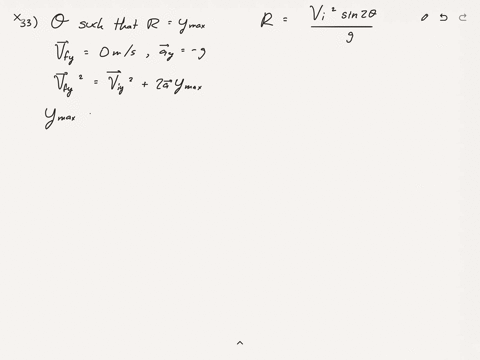 x33) θ such that R = ymax
R = Vi² sin2θ / g
V⃗fy = 0 m/s , a⃗y = -g
V⃗fy² = V⃗iy² + 2a⃗ ymax
ymax